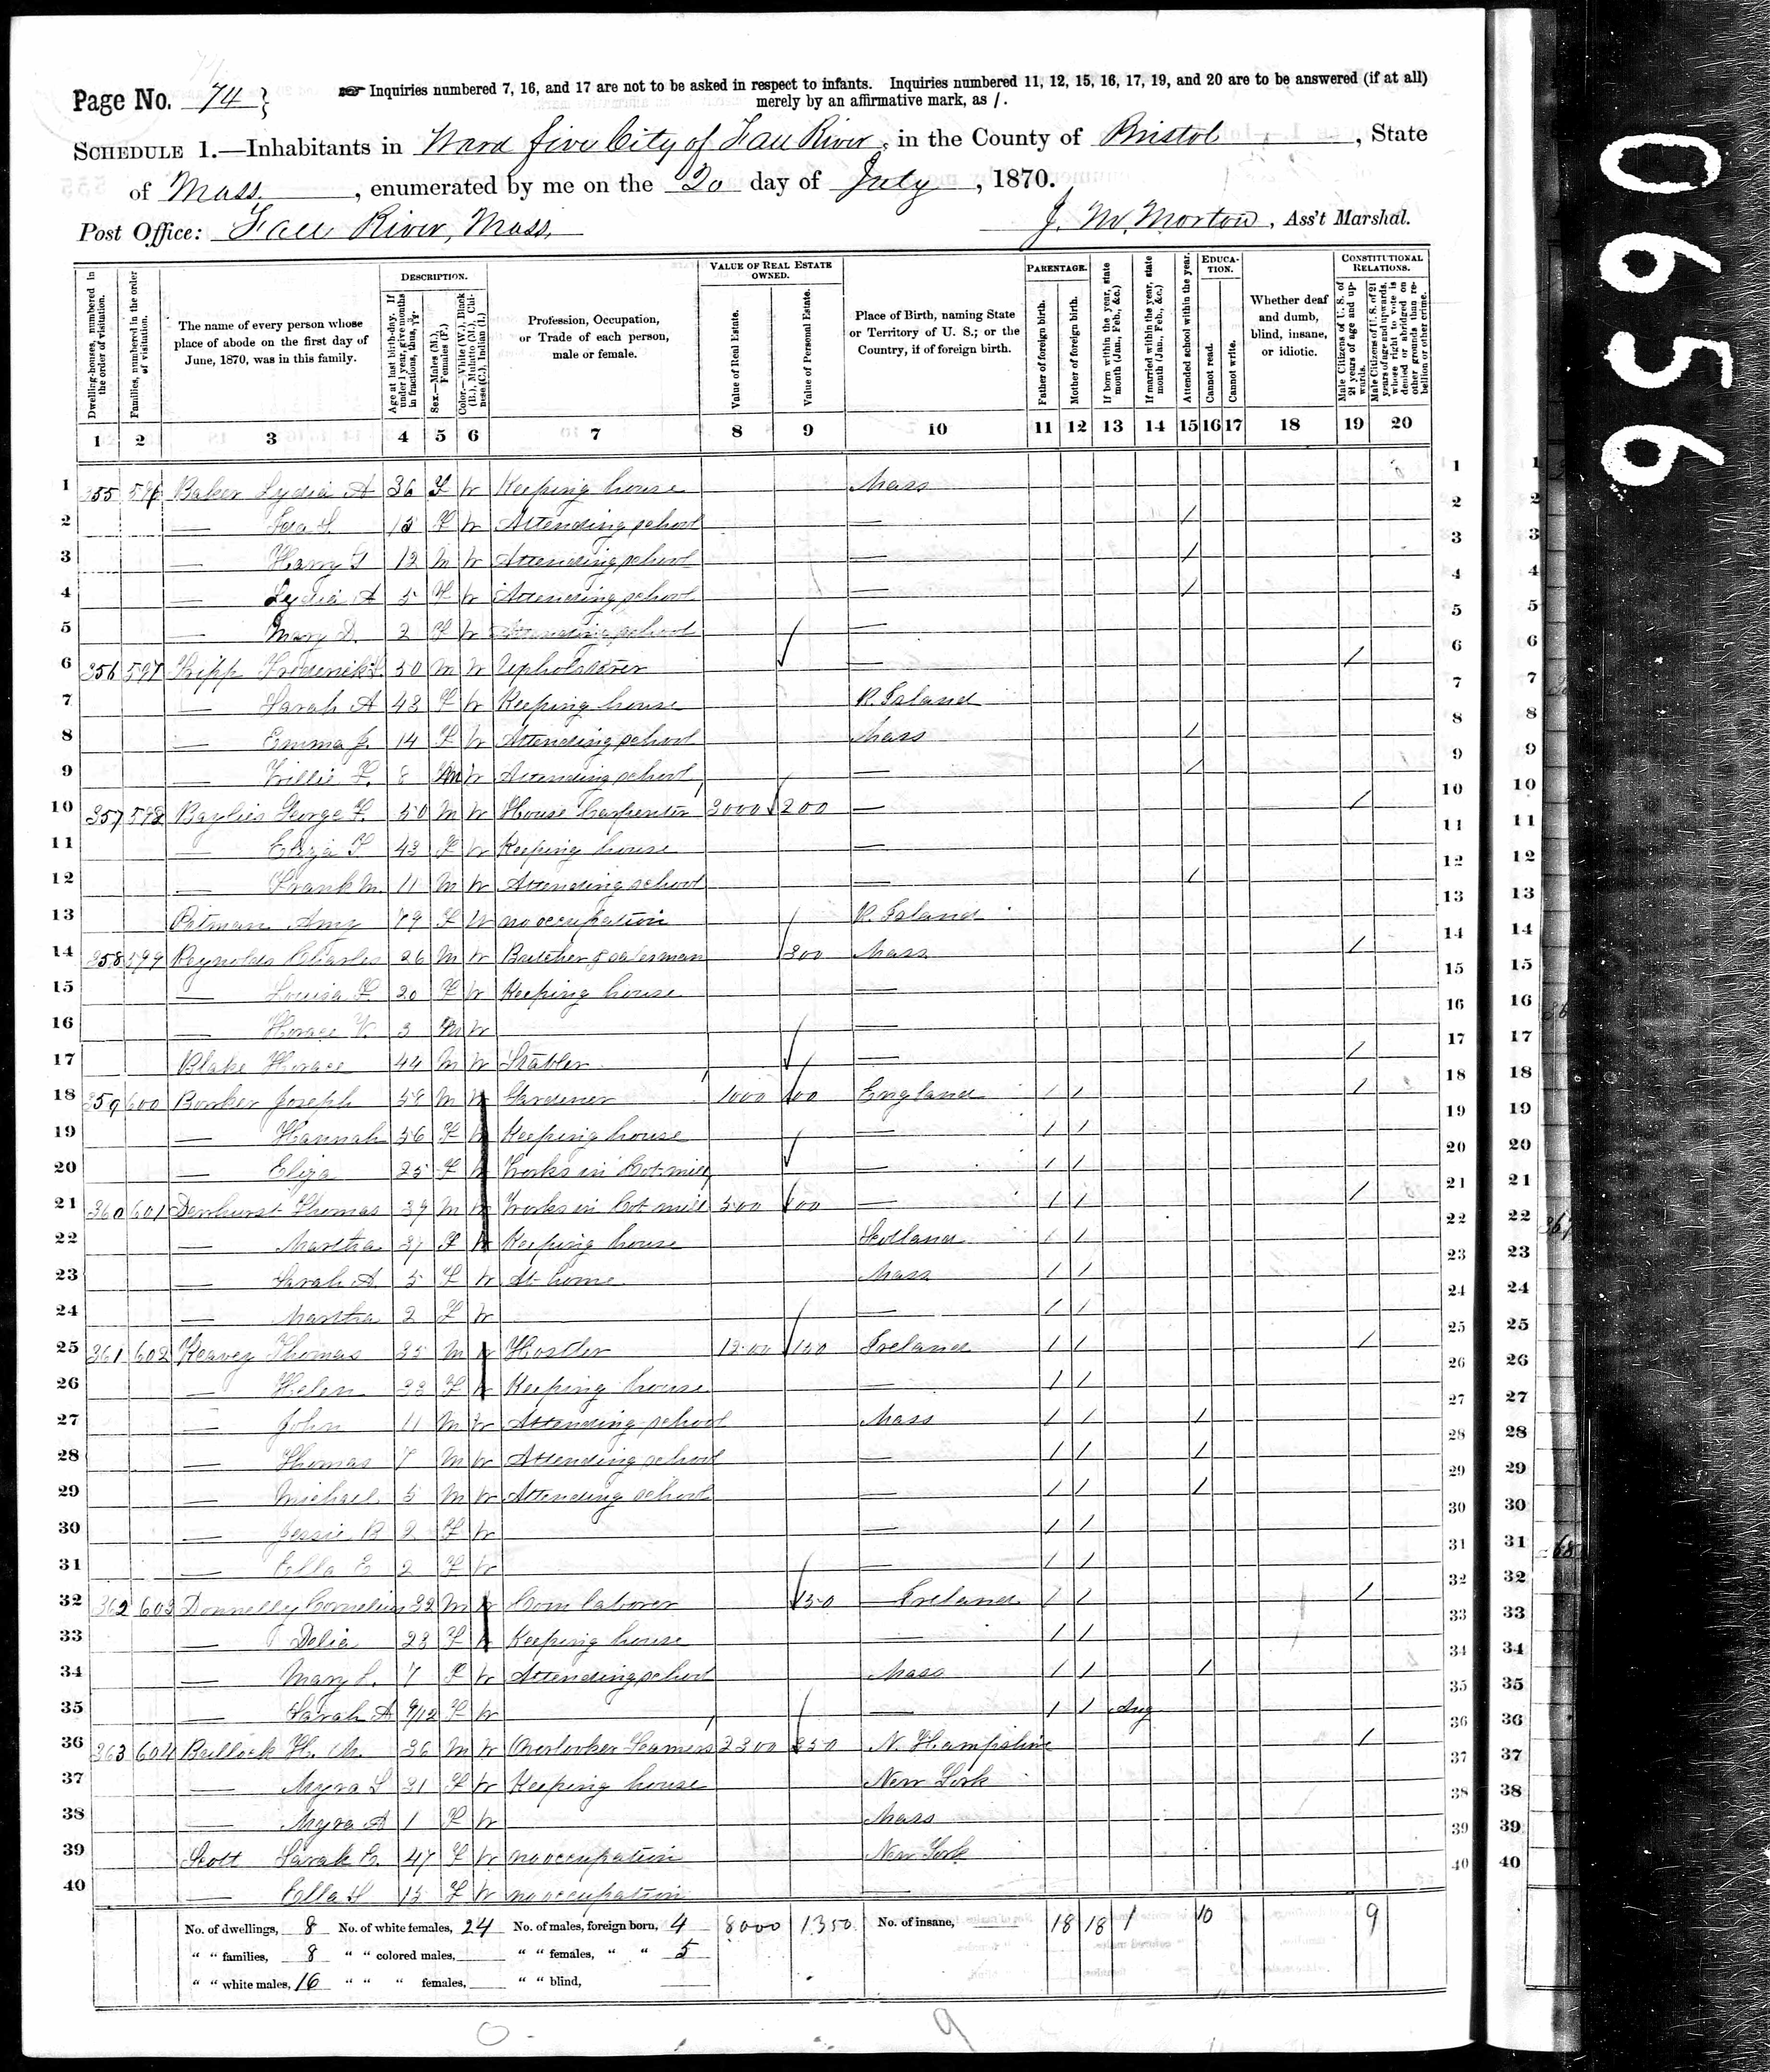 Page No. 74
Inquiries numbered 7, 16, and 17 are not to be asked in respect to infants. Inquiries numbered 11, 12, 15, 16, 17, 19, and 20 are to be answered (if at all)
merely by an affirmative mark, as /.
SCHEDULE 1.—Inhabitants in Ward five City of Fall River, in the County of Bristol, State
of Mass., enumerated by me on the 20 day of July, 1870.
Post Office: Fall River, Mass. J. M. Morton, Ass't Marshal.
0659
Dwelling-houses, numbered in the order of visitation.
Families, numbered in the order of visitation.
The name of every person whose place of abode on the first day of June, 1870, was in this family.
DESCRIPTION.
Age at last birth-day. If under 1 year, give months in fractions, thus, 3/12
Sex.—Males (M.), Females (F.)
Color.—White (W.), Black (B.), Mulatto (M.), Chinese (C.), Indian (I.)
Profession, Occupation, or Trade of each person, male or female.
VALUE OF REAL ESTATE OWNED.
Value of Real Estate.
Value of Personal Estate.
Place of Birth, naming State or Territory of U. S.; or the Country, if of foreign birth.
PARENTAGE.
Father of foreign birth.
Mother of foreign birth.
If born within the year, state month (Jan., Feb., &c.)
If married within the year, state month (Jan., Feb., &c.)
Attended school within the year.
EDUCATION.
Cannot read.
Cannot write.
Whether deaf and dumb, blind, insane, or idiotic.
CONSTITUTIONAL RELATIONS.
Male Citizens of U. S. of 21 years of age and upwards.
Male Citizens of U. S. of 21 years of age and upwards, whose right to vote is denied or abridged on other grounds than rebellion or other crime.
1 2 3 4 5 6 7 8 9 10 11 12 13 14 15 16 17 18 19 20
1 355 596 Baker Lydia A 36 F W Keeping house Mass 1
2 — 15 F W Attending school — / 2
3 — Harry 12 M W Attending school — / 3
4 — Lydia A 5 F W Attending school — / 4
5 — Mary D. 2 F W Attending school — 5
6 356 597 Tripp Frederick 50 M W Upholsterer — / 6
7 — Sarah A 48 F W Keeping house R. Island 7
8 — Emma J. 14 F W Attending school Mass / 8
9 — Willie F. 8 M W Attending school — / 9
10 357 598 Baylies George F. 50 M W House Carpenter 3000 200 — / 10
11 — Eliza 43 F W Keeping house — 11
12 — Frank M. 11 M W Attending school — / 12
13 Pitman Amy 79 F W no occupation R. Island 13
14 358 599 Reynolds Charles 26 M W Butcher & salesman 300 Mass / 14
15 — Louisa F 20 F W Keeping house — 15
16 — Horace 3 M W 16
17 Blake Horace 44 M W Stabler — / 17
18 359 600 Booker Joseph 58 M W Gardener 1000 100 England / / / 18
19 — Hannah 56 F W Keeping house — / / 19
20 — Eliza 25 F W Works in Cot. mill — / / 20
21 360 601 Dewhurst Thomas 39 M W Works in Cot. mill 500 100 — / / / 21
22 — Martha 37 F W Keeping house Scotland / / 22
23 — Sarah A 5 F W At home Mass / / 23
24 — Martha 2 F W — / / 24
25 361 602 Keavey Thomas 35 M W Hostler 1200 150 Ireland / / / 25
26 — Helen 33 F W Keeping house — / / 26
27 — John 11 M W Attending school Mass / / / 27
28 — Thomas 7 M W Attending school — / / / 28
29 — Michael 5 M W Attending school — / / / 29
30 — Jessie B 2 F W — / / 30
31 — Ella E 2 F W — / / 31
32 362 603 Donnelly Cornelius 32 M W Com laborer 150 Ireland / / / 32
33 — Delia 28 F W Keeping house — / / 33
34 — Mary 7 F W Attending school Mass / / / 34
35 — Sarah A 9/12 F W — / / Aug 35
36 363 604 Bullock H. M. 36 M W Overlooker 2300 350 N. Hampshire / 36
37 — Myra 31 F W Keeping house New York 37
38 — Myra A 1 F W Mass 38
39 Scott Sarah E. 47 F W no occupation New York 39
40 — Ella 15 F W no occupation — 40
No. of dwellings, 8 No. of white females, 24 No. of males, foreign born, 4 8000 1350 No. of insane, 18 18 1 10 9
" " families, 8 " " colored males, " " females, " " 5
" " white males, 16 " " " females, " " blind,
9